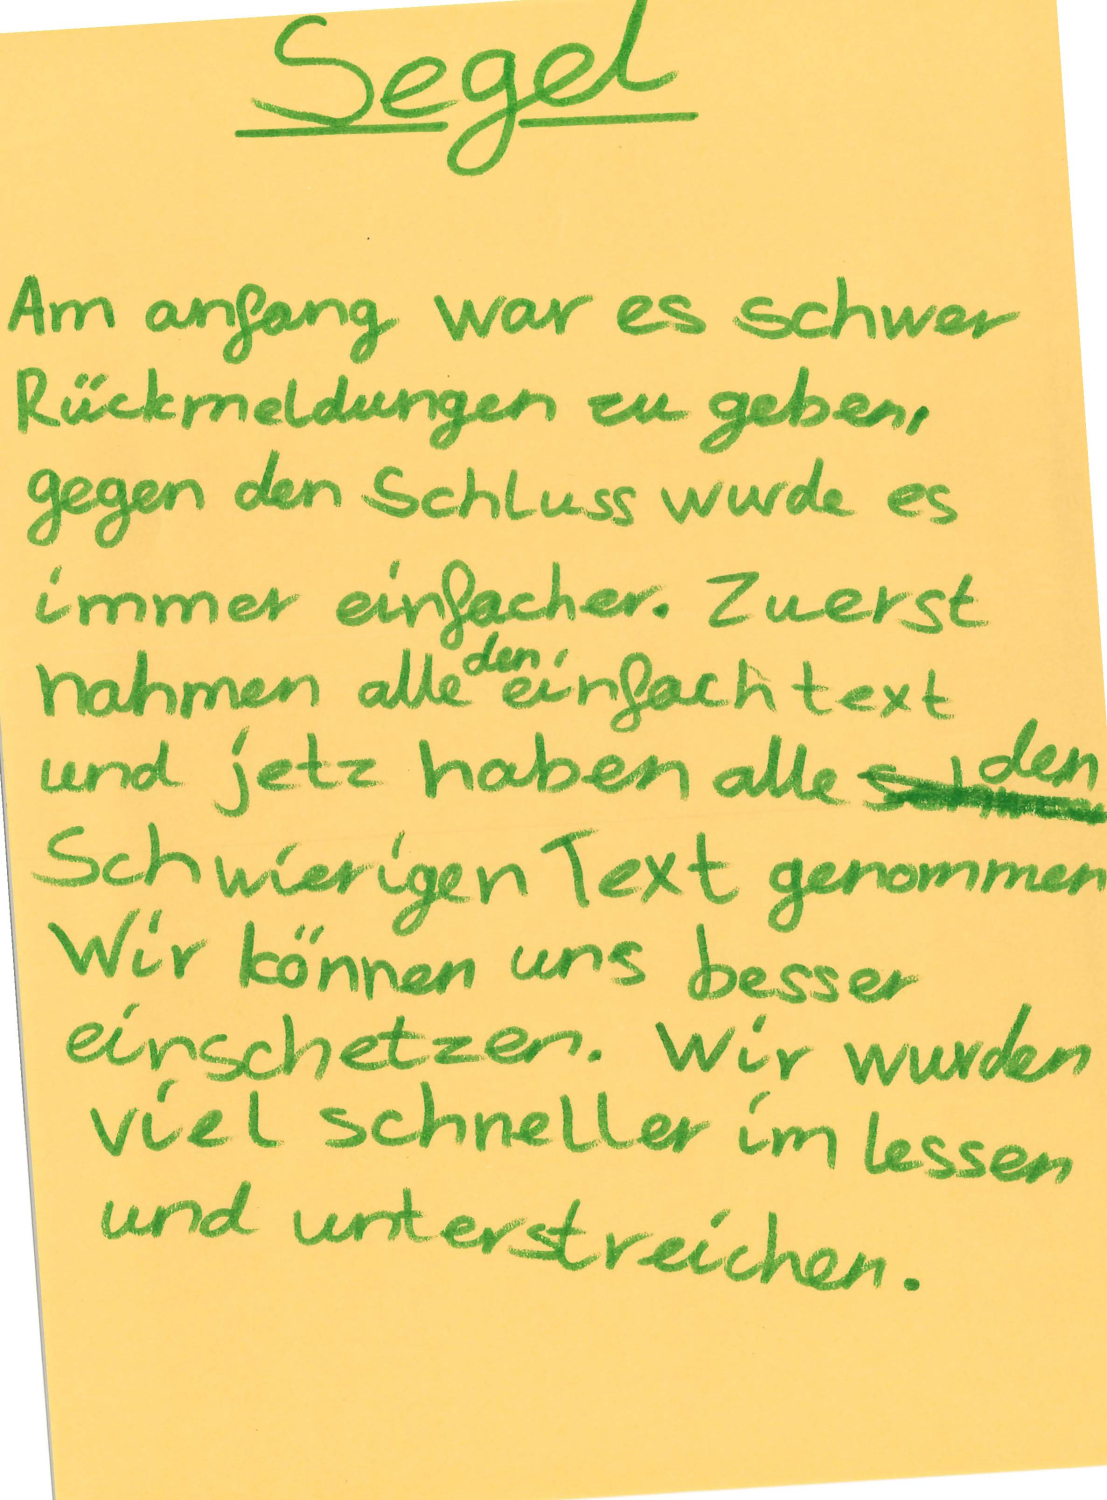 Segel
Am anfang war es schwer
Rückmeldungen zu geben,
gegen den Schluss wurde es
immer einfacher. Zuerst
nahmen alle den einfach text
und jetz haben alle den
Schwierigen Text genommen
Wir können uns besser
einschetzen. Wir wurden
viel schneller im lessen
und unterstreichen.